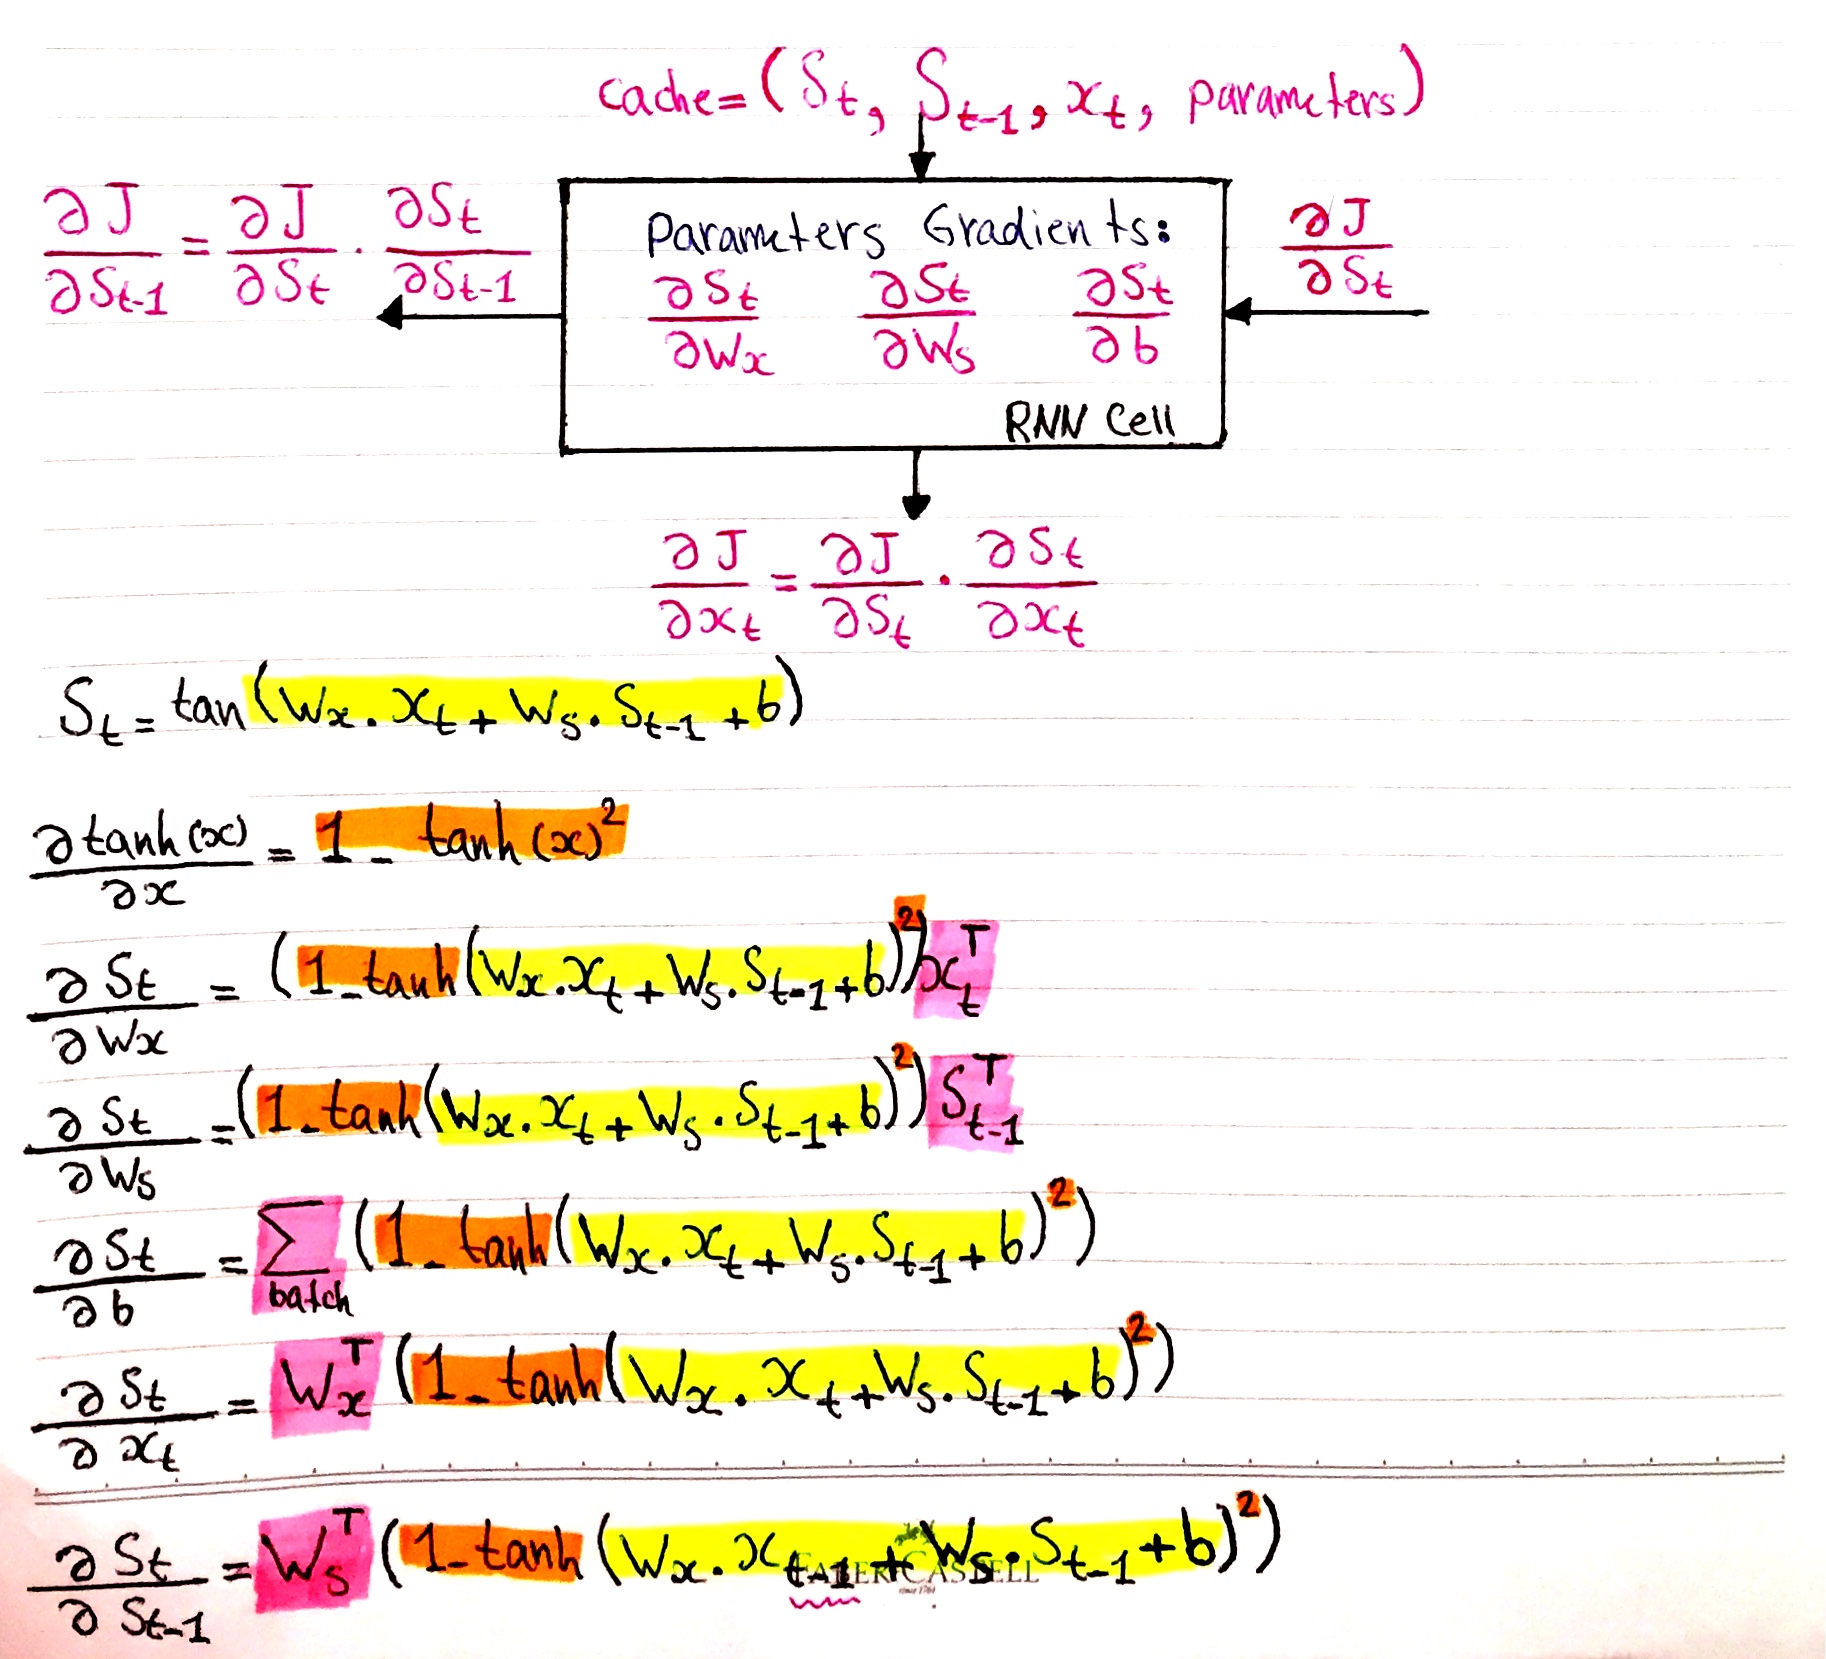 cache = (St, St-1, xt, parameters)
∂J/∂St-1 = ∂J/∂St · ∂St/∂St-1
Parameters Gradients:
∂St/∂Wx ∂St/∂Ws ∂St/∂b
RNN Cell
∂J/∂St
∂J/∂xt = ∂J/∂St · ∂St/∂xt
St = tan(Wx.xt + Ws.St-1 + b)
∂tanh(x)/∂x = 1 - tanh(x)²
∂St/∂Wx = (1-tanh(Wx.xt + Ws.St-1 + b)²)xtᵀ
∂St/∂Ws = (1-tanh(Wx.xt + Ws.St-1 + b)²)St-1ᵀ
∂St/∂b = Σbatch (1-tanh(Wx.xt + Ws.St-1 + b)²)
∂St/∂xt = Wxᵀ (1-tanh(Wx.xt + Ws.St-1 + b)²)
∂St/∂St-1 = Wsᵀ (1-tanh(Wx.xt-1 + Ws.St-1 + b)²)
FABER-CASTELL
since 1761